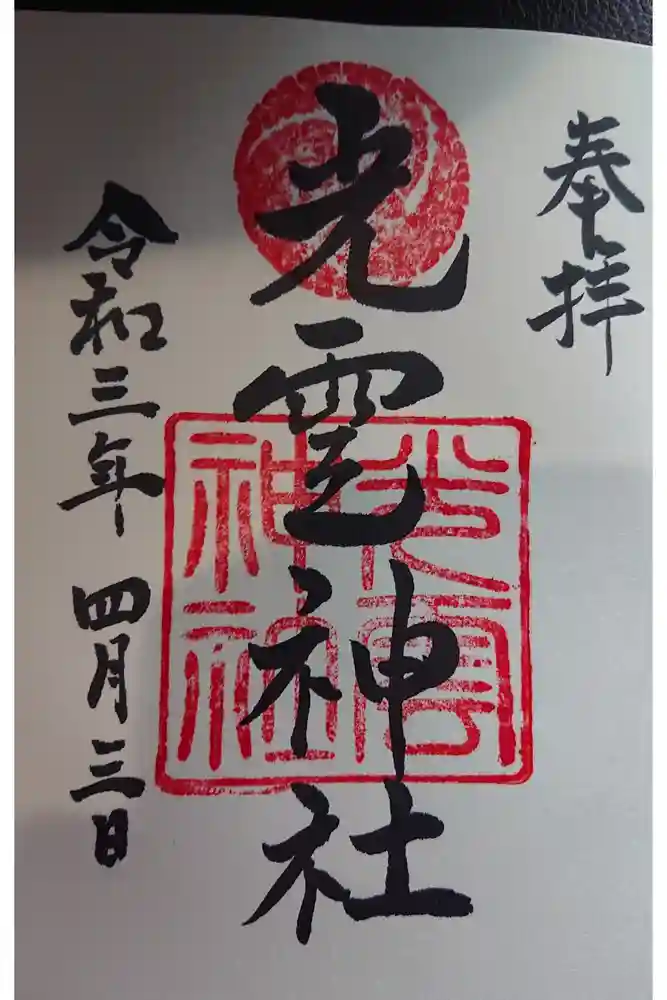 奉拝
光雲神社
光雲
神社
令和三年四月三日